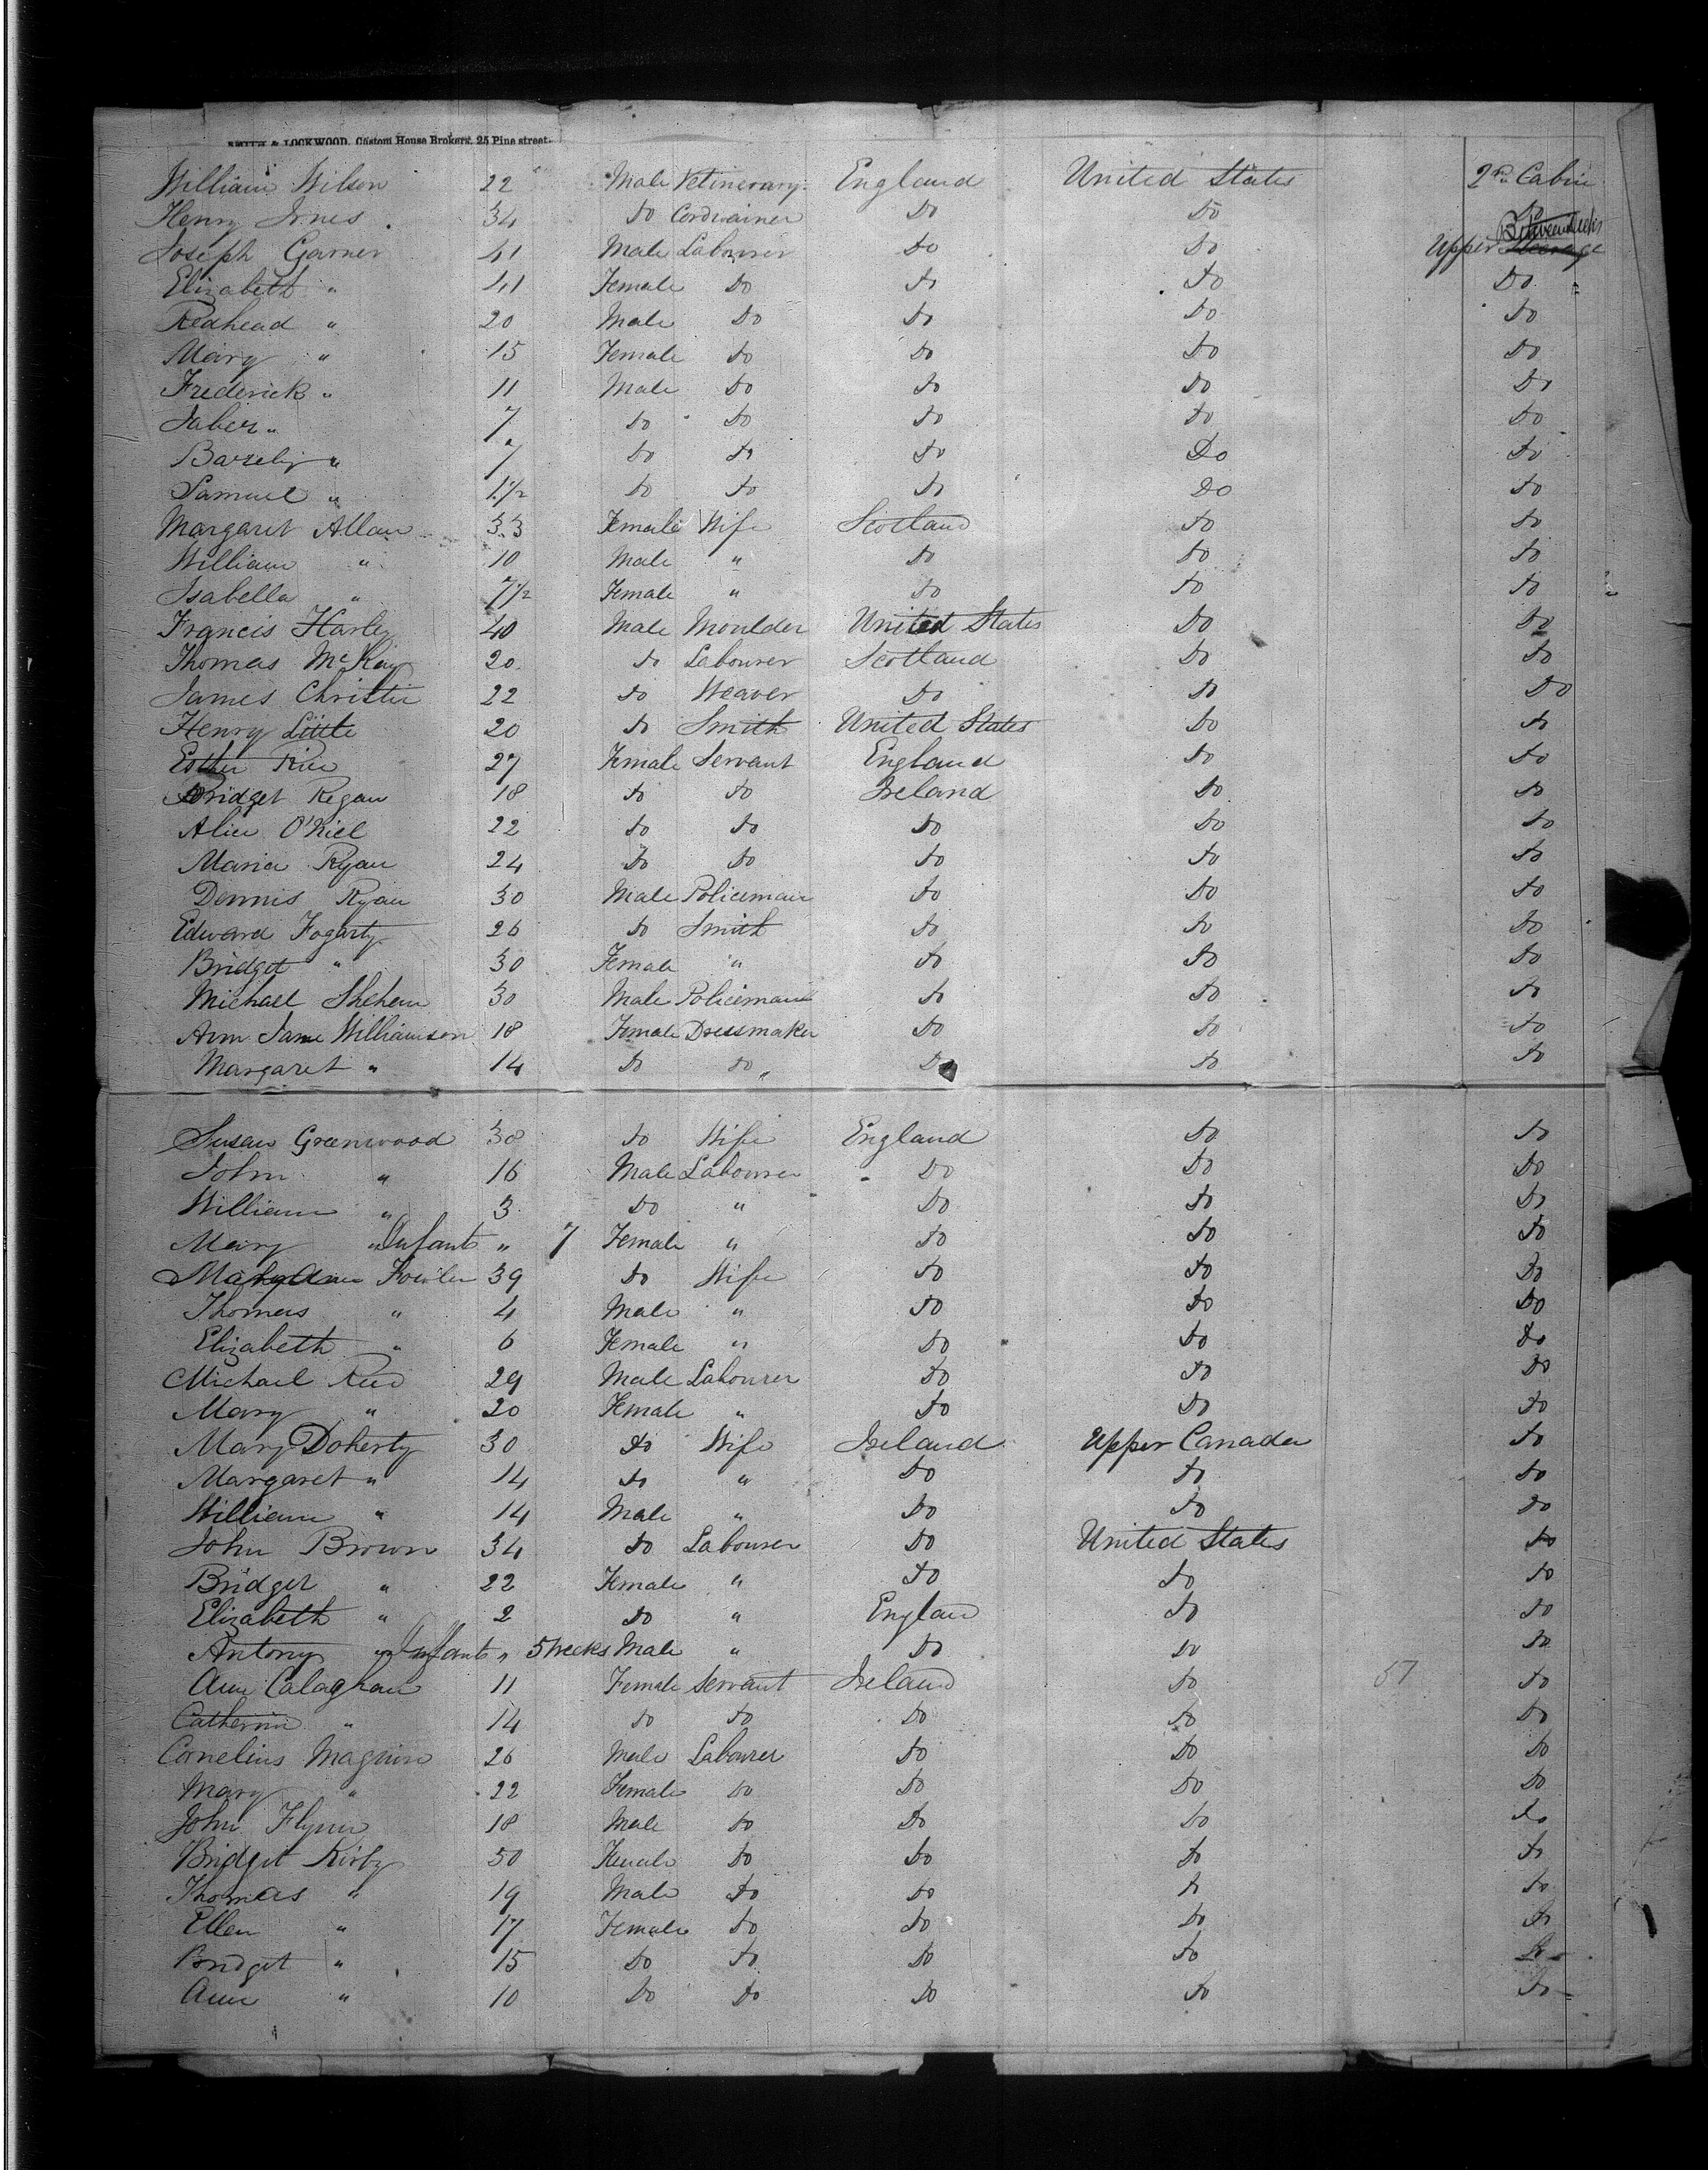 SMITH & LOCKWOOD, Custom House Brokers, 25 Pine street.
William Wilson 22 Male Vetinerary England United States 2nd Cabin
Henry Irnes 34 Do Cordwainer Do Do Do
Between Decks
Joseph Garner 41 Male Labourer Do Do Upper Steerage
Elizabeth " 41 Female Do Do Do Do
Redhead " 20 Male Do Do Do Do
Mary " 15 Female Do Do Do Do
Frederick " 11 Male Do Do Do Do
Jabez " 7 Do Do Do Do Do
" 7 Do Do Do Do Do
Samuel " 1 1/2 Do Do Do Do Do
Margaret Allan 33 Female Wife Scotland Do Do
William " 10 Male " Do Do Do
Isabella " 7 1/2 Female " Do Do Do
Francis Harley 40 Male Moulder United States Do Do
Thomas McKay 20 Do Labourer Scotland Do Do
James Christie 22 Do Weaver Do Do Do
Henry Little 20 Do Smith United States Do Do
Esther Rice 27 Female Servant England Do Do
Bridget Regan 18 Do Do Ireland Do Do
Alice O'Niel 22 Do Do Do Do Do
Maria Ryan 24 Do Do Do Do Do
Dennis Ryan 30 Male Policeman Do Do Do
Edward Fogarty 26 Do Smith Do Do Do
Bridget " 30 Female " Do Do Do
Michael Shehan 30 Male Policeman Do Do Do
Ann Jane Williamson 18 Female Dressmaker Do Do Do
Margaret " 14 Do Do " Do Do Do
Susan Greenwood 38 Do Wife England Do Do
John " 16 Male Labourer Do Do Do
William " 3 Do " Do Do Do
Mary " Infant " 7 Female " Do Do Do
Mary Ann Fowler 39 Do Wife Do Do Do
Thomas " 4 Male " Do Do Do
Elizabeth " 6 Female " Do Do Do
Michael Reed 29 Male Labourer Do Do Do
Mary " 20 Female " Do Do Do
Mary Doherty 30 Do Wife Ireland Upper Canada Do
Margaret " 14 Do " Do Do Do
William " 14 Male " Do Do Do
John Brown 34 Do Labourer Do United States Do
Bridget " 22 Female " Do Do Do
Elizabeth " 2 Do " England Do Do
Antony " Infant " 5 Weeks Male " Do Do Do
Ann Calaghan 11 Female Servant Ireland Do 57 Do
Catherin " 14 Do Do Do Do Do
Cornelius 26 Male Labourer Do Do Do
Mary " 22 Female Do Do Do Do
John Flynn 18 Male Do Do Do Do
Bridget Kirby 50 Female Do Do Do Do
Thomas " 19 Male Do Do Do Do
Ellen " 17 Female Do Do Do Do
Bridget " 15 Do Do Do Do Do
Ann " 10 Do Do Do Do Do